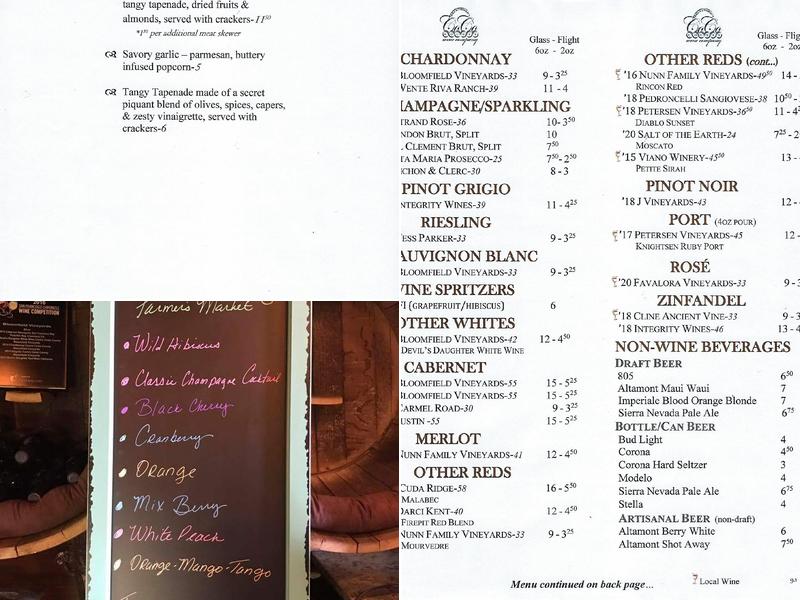 tangy tapenade, dried fruits &
almonds, served with crackers-11⁵⁰
*1⁵⁰ per additional meat skewer
Savory garlic – parmesan, buttery
infused popcorn-5
Tangy Tapenade made of a secret
piquant blend of olives, spices, capers,
& zesty vinaigrette, served with
crackers-6
WINE COMPETITION
Farmers Market
Wild Hibiscus
Classic Champagne Cocktail
Black Cherry
Cranberry
Orange
Mix Berry
White Peach
Orange-Mango-Tango
Glass - Flight
6oz - 2oz
CHARDONNAY
BLOOMFIELD VINEYARDS-33 9 - 3²⁵
WENTE RIVA RANCH-39 11 - 4
HAMPAGNE/SPARKLING
TRAND ROSE-36 10- 3⁵⁰
NDON BRUT, SPLIT 10
CLEMENT BRUT, SPLIT 7⁵⁰
TA MARIA PROSECCO-25 7⁵⁰- 2⁵⁰
CHON & CLERC-30 8 - 3
PINOT GRIGIO
NTEGRITY WINES-39 11 - 4²⁵
RIESLING
ESS PARKER-33 9 - 3²⁵
AUVIGNON BLANC
BLOOMFIELD VINEYARDS-33 9 - 3²⁵
INE SPRITZERS
(GRAPEFRUIT/HIBISCUS) 6
OTHER WHITES
BLOOMFIELD VINEYARDS-42 12 - 4⁵⁰
DEVIL'S DAUGHTER WHITE WINE
CABERNET
BLOOMFIELD VINEYARDS-55 15 - 5²⁵
BLOOMFIELD VINEYARDS-55 15 - 5²⁵
CARMEL ROAD-30 9 - 3²⁵
USTIN -55 15 - 5²⁵
MERLOT
NUNN FAMILY VINEYARDS-41 12 - 4⁵⁰
OTHER REDS
CUDA RIDGE-58 16 - 5⁵⁰
MALABEC
DARCI KENT-40 12 - 4⁵⁰
FIREPIT RED BLEND
NUNN FAMILY VINEYARDS-33 9 - 3²⁵
MOURVEDRE
Glass - Flight
6oz - 2oz
OTHER REDS (cont...)
'16 NUNN FAMILY VINEYARDS-49⁵⁰ 14 -
RINCON RED
'18 PEDRONCELLI SANGIOVESE-38 10⁵⁰ -
'18 PETERSEN VINEYARDS-36⁵⁰ 11 - 4
DIABLO SUNSET
'20 SALT OF THE EARTH-24 7²⁵ - 2
MOSCATO
'15 VIANO WINERY-45⁵⁰ 13 -
PETITE SIRAH
PINOT NOIR
'18 J VINEYARDS-43 12 -
PORT (4OZ POUR)
'17 PETERSEN VINEYARDS-45 12 -
KNIGHTSEN RUBY PORT
ROSÉ
'20 FAVALORA VINEYARDS-33 9 - 3
ZINFANDEL
'18 CLINE ANCIENT VINE-33 9 - 3
'18 INTEGRITY WINES-46 13 - 4
NON-WINE BEVERAGES
DRAFT BEER
805 6⁵⁰
Altamont Maui Waui 7
Imperiale Blood Orange Blonde 7
Sierra Nevada Pale Ale 6⁷⁵
BOTTLE/CAN BEER
Bud Light 4
Corona 4⁵⁰
Corona Hard Seltzer 3
Modelo 4
Sierra Nevada Pale Ale 6⁷⁵
Stella 4
ARTISANAL BEER (non-draft)
Altamont Berry White 6
Altamont Shot Away 7⁵⁰
Menu continued on back page…
Local Wine